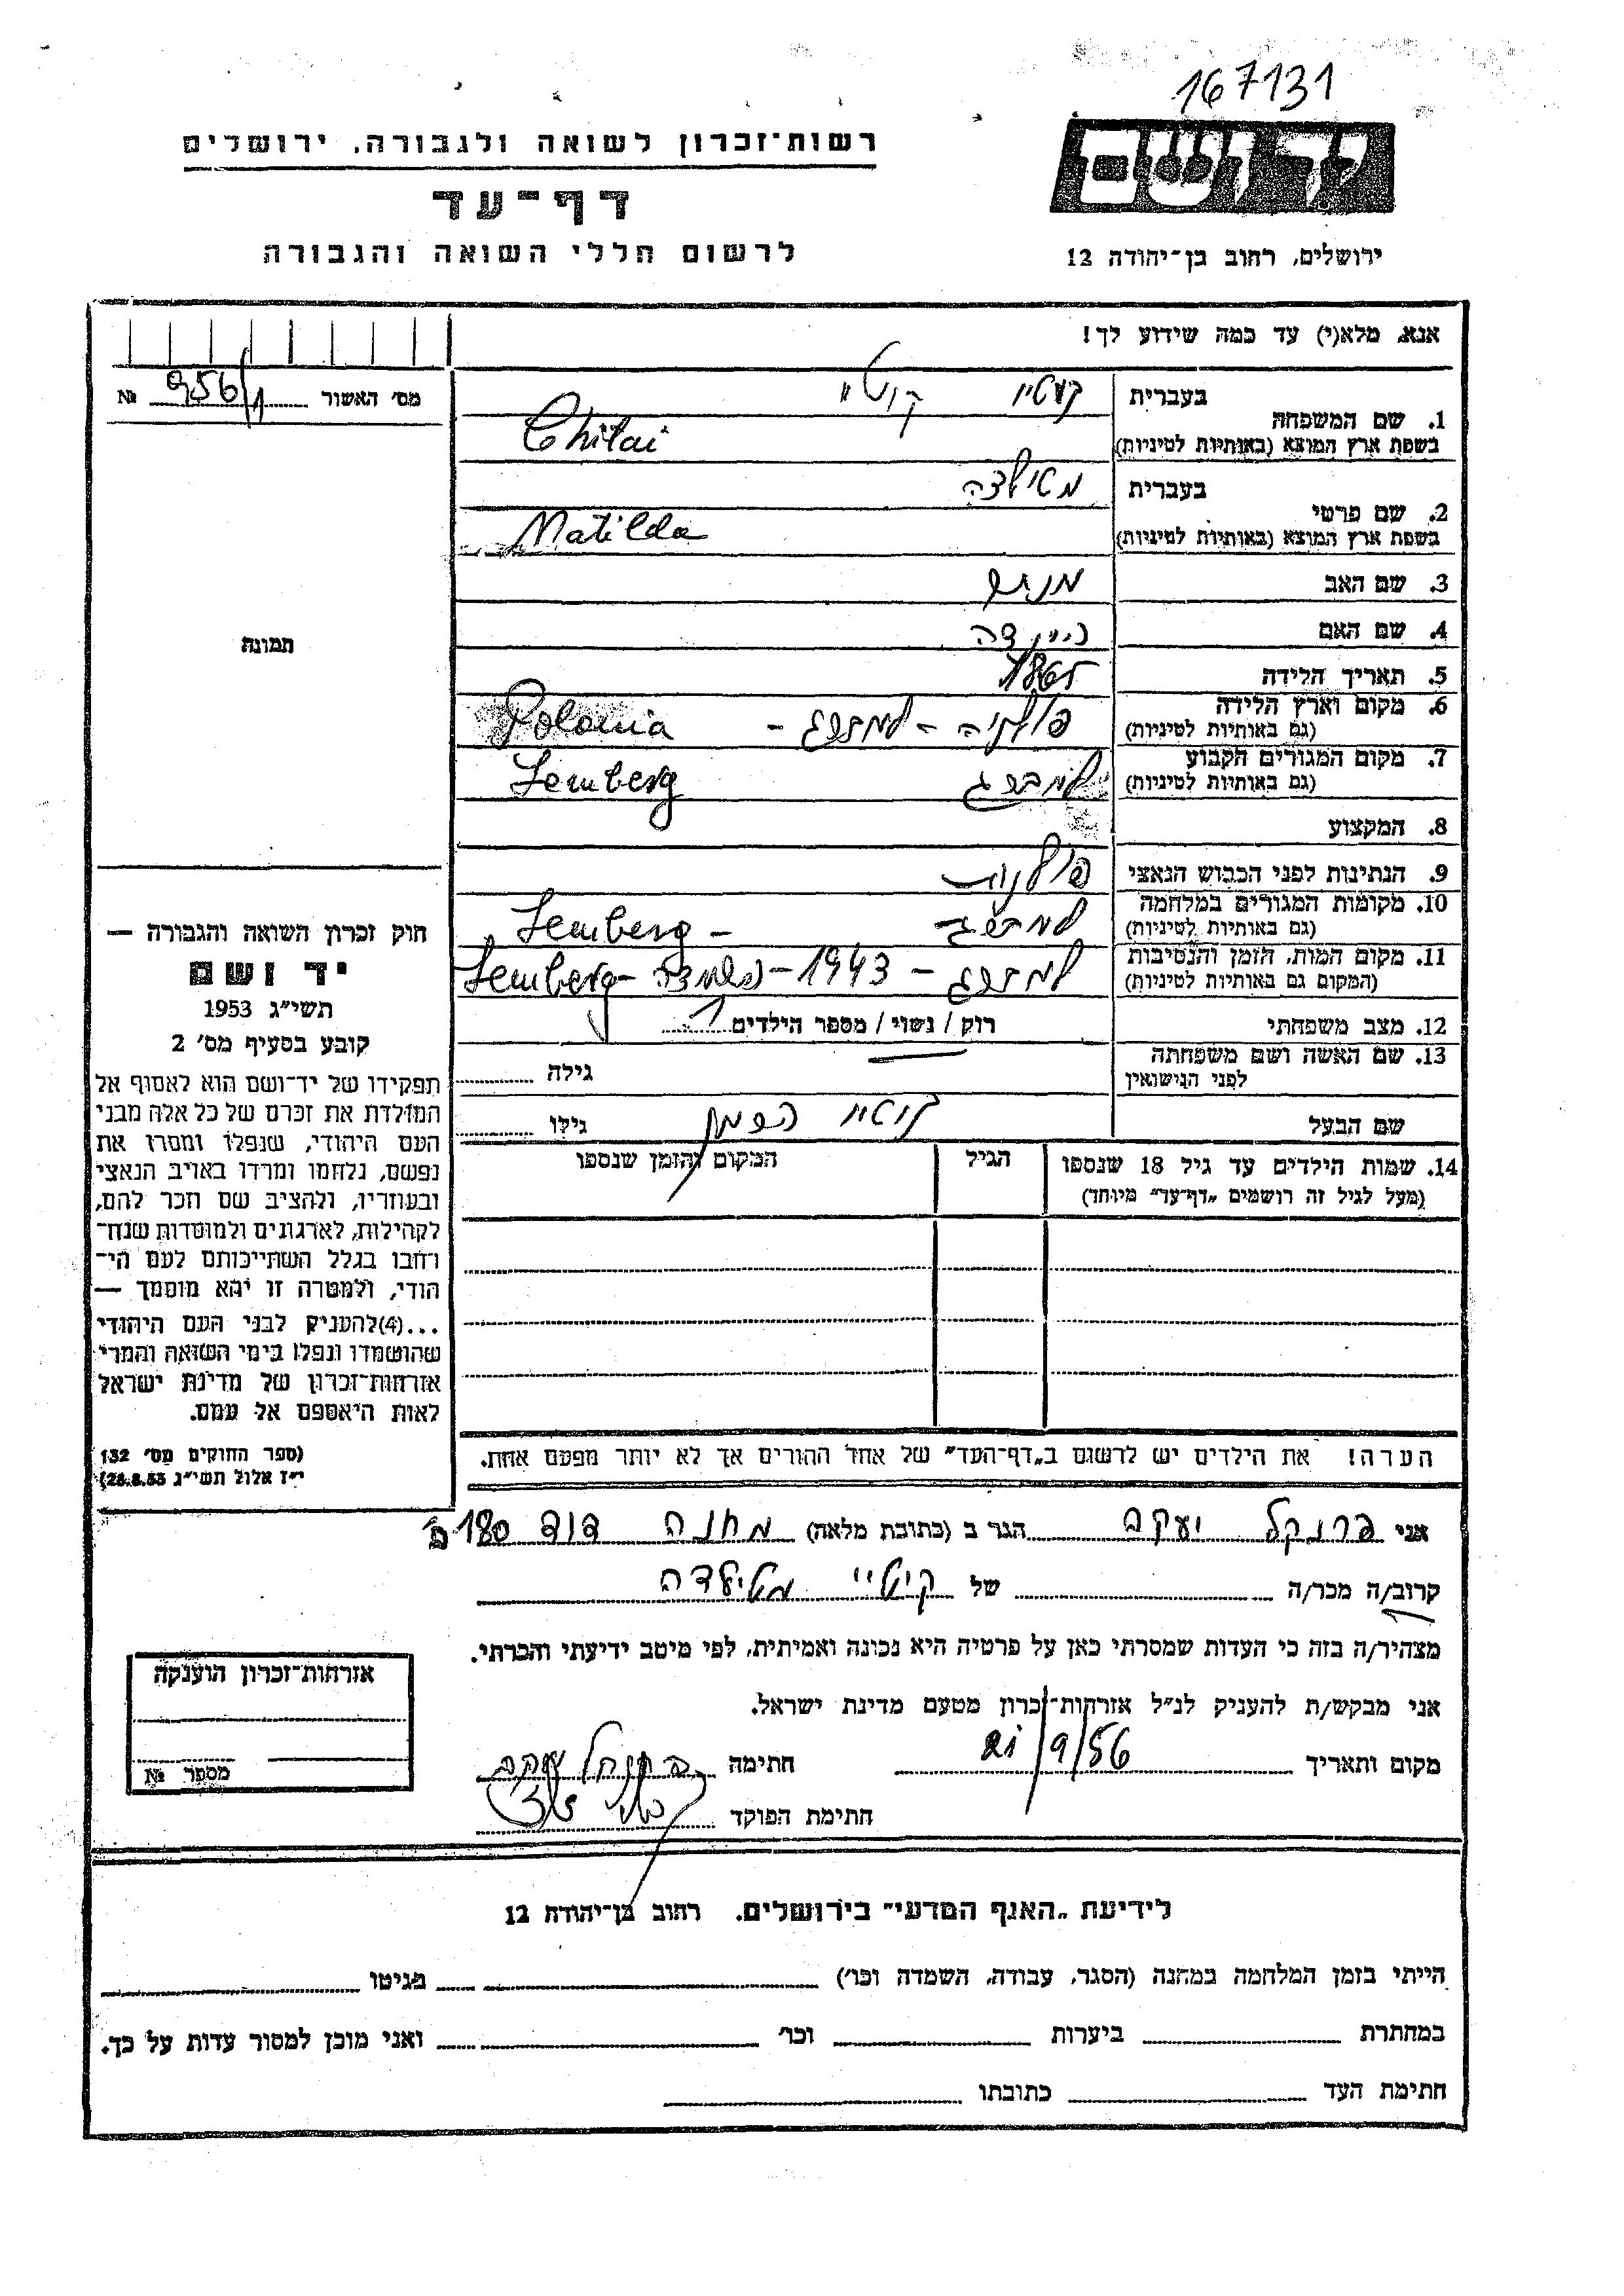 167131
יד ושם
ירושלים, רחוב בן־יהודה 12
רשות־זכרון לשואה ולגבורה, ירושלים
דף־עד
לרשום חללי השואה והגבורה
אנא, מלא(י) עד כמה שידוע לך!
מס' האשור 956/1 №
תמונה
1. שם המשפחה
בעברית
בשפת ארץ המוצא (באותיות לטיניות) Chitai
2. שם פרטי
בעברית מטילדה
בשפת ארץ המוצא (באותיות לטיניות) Matilda
3. שם האב
4. שם האם
5. תאריך הלידה 1865
6. מקום וארץ הלידה פולניה - למברג - Polonia
(גם באותיות לטיניות)
7. מקום המגורים הקבוע למברג Lemberg
(גם באותיות לטיניות)
8. המקצוע
9. הנתינות לפני הכבוש הנאצי פולנית
10. מקומות המגורים במלחמה למברג - Lemberg
(גם באותיות לטיניות)
11. מקום המות, הזמן והנסיבות למברג - 1943 - השמדה - Lemberg
(המקום גם באותיות לטיניות)
12. מצב משפחתי רוק / נשוי / מספר הילדים 1
13. שם האשה ושם משפחתה גילה
לפני הנישואין
שם הבעל הרמן גילו
14. שמות הילדים עד גיל 18 שנספו הגיל המקום והזמן שנספו
(מעל לגיל זה רושמים „דף־עד” מיוחד)
הערה! את הילדים יש לרשום ב„דף־העד” של אחד ההורים אך לא יותר מפעם אחת.
חוק זכרון השואה והגבורה —
יד ושם
תשי״ג 1953
קובע בסעיף מס' 2
תפקידו של יד־ושם הוא לאסוף אל
המולדת את זכרם של כל אלה מבני
העם היהודי, שנפלו ומסרו את
נפשם, נלחמו ומרדו באויב הנאצי
ובעוזריו, ולהציב שם וזכר להם,
לקהילות, לארגונים ולמוסדות שנח־
רחבו בגלל השתייכותם לעם הי־
הודי, ולמטרה זו יהא מוסמך —
...(4)להעניק לבני העם היהודי
שהושמדו ונפלו בימי השואה והמרי
אזרחות־זכרון של מדינת ישראל
לאות היאספם אל עמם.
(ספר החוקים מס' 132
י״ז אלול תשי״ג 28.8.53)
אני פרנקל יעקב הגר ב (כתובת מלאה) מחנה דוד 180
קרוב/ה מכר/ה של קיטיי מטילדה
מצהיר/ה בזה כי העדות שמסרתי כאן על פרטיה היא נכונה ואמיתית, לפי מיטב ידיעתי והכרתי.
אני מבקש/ת להעניק לנ״ל אזרחות־זכרון מטעם מדינת ישראל.
מקום ותאריך 21/9/56 חתימה פרנקל יעקב
חתימת הפוקד
אזרחות־זכרון הוענקה
מספר №
לידיעת „האגף המדעי” בירושלים, רחוב בן־יהודה 12
הייתי בזמן המלחמה במחנה (הסגר, עבודה, השמדה וכו') בגיטו
במחתרת ביערות וכו' ואני מוכן למסור עדות על כך.
חתימת העד כתובתו